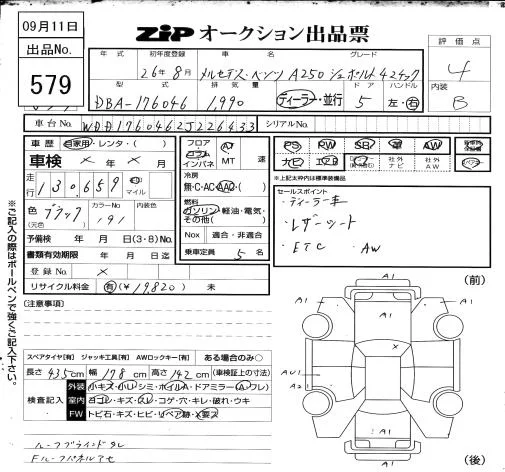 09月11日
出品No.
579
ZiP オークション出品票
年式 初年度登録 車名 グレード
26年8月 メルセデス・ベンツ A250 シュポルト 4マチック
評価点
4
内装
B
型式 排気量 ドア ハンドル
DBA-176046 1,990 ディーラー・並行 5 左・右
車台No. WDD1760462J226433 シリアルNo.
車歴 自家用・レンタ・( )
車検 × 年 × 月
走行 130,659 km マイル
色 (元色) ブラック カラーNo. 191 内装色
予備検 年 月 日(3・8)No.
書類有効期限 年 月 日迄
登録No. ×
リサイクル料金 有(¥19,820) 未
フロア コラム インパネ AT MT 速
冷房 無・C・AC・AAC・( )
燃料 ガソリン・軽油・電気・その他( )
Nox 適合・非適合
乗車定員 5 名
PS PW SR 革 AW
ナビ 社外ナビ 社外AW
※上記太枠内は標準装備品
セールスポイント
・ディーラー車
・レザーシート
・ETC ・AW
[注意事項]
スペアタイヤ[有] ジャッキ工具[有] AWロックキー[有] ある場合のみ○
長さ 435cm 幅 178cm 高さ 142cm (車検証上の寸法)
検査記入
外装 小キズ・小・シミ・ホイルA・ドアミラー(A・ワレ)
室内 ヨゴレ・キズ・スレ・コゲ・穴・キレ・破れ・ウキ
FW トビ石・キズ・ヒビ・リペア跡・X要ス
ルーフブラインドタレ
※ご記入の際はボールペンで強くご記入下さい。
(前)
A1
A1
A1 A1
×
AU1
A2
A1
A1
A1
(後)